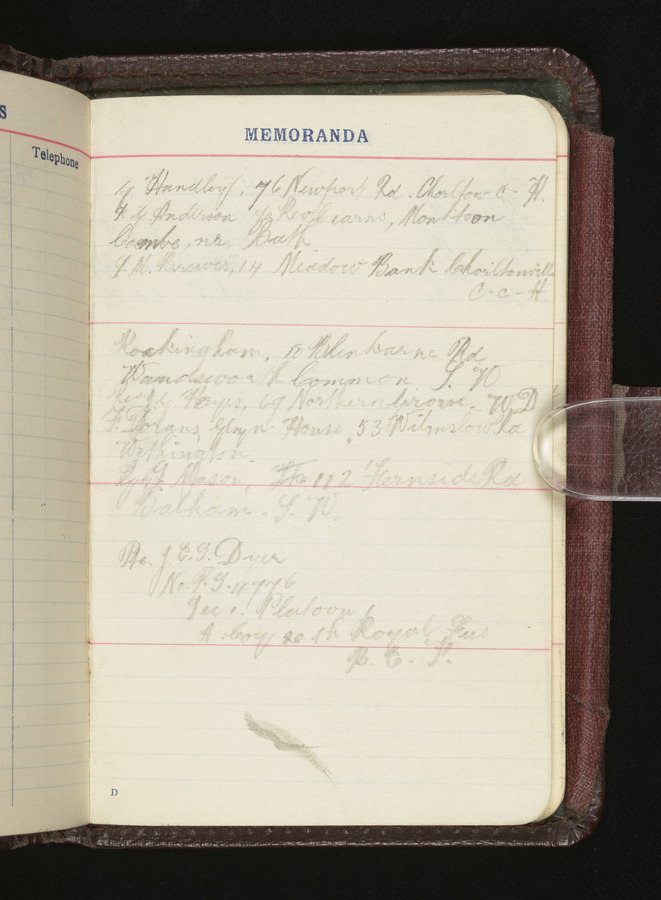 S
Telephone
MEMORANDA
Handley, 76 Newport Rd. Chorlton-c-H.
Anderson Rev, Monkton
Combe, nr. Bath
14 Meadow Bank Chorltonville
C-c-H.
Rockingham, Blenkarne Rd
Wandsworth Common S.W
Hayes, 69 Northern Grove. W.D
F. Dorans, Glayn House, 53 Wilmslow Rd
Withington.
Mason, 112 Fernside Rd
Balham. S.W.
Pte. J. E. G. Dyer
No. P.S. 4776
Sec Platoon
A Coy 20th Royal Fus
B. E. F.
D